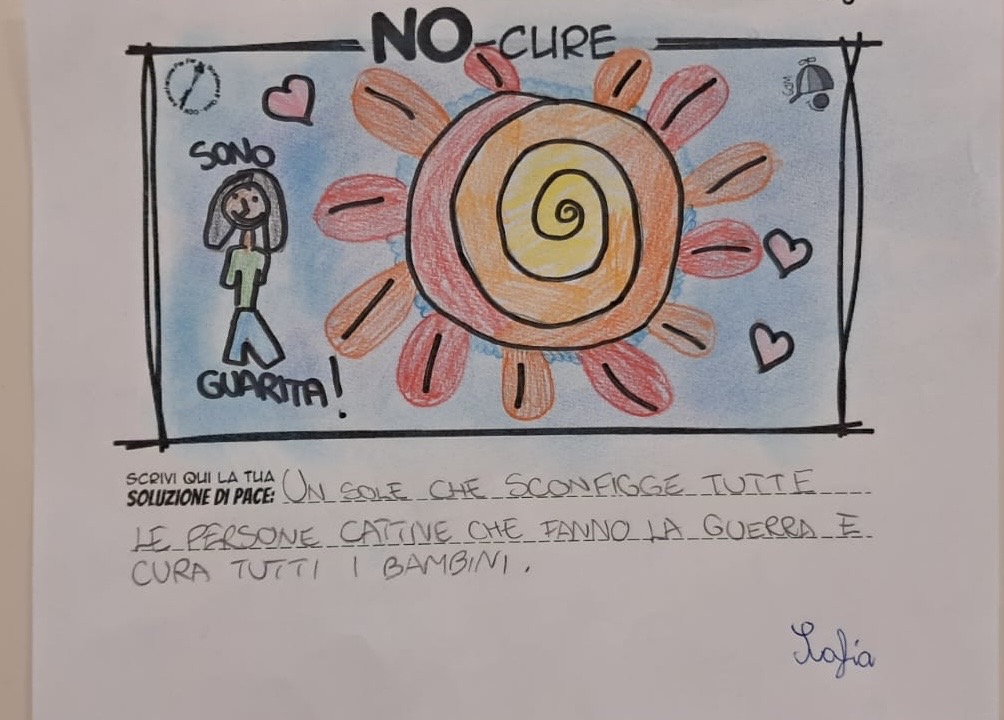 NO-CURE
SONO
GUARITA!
SCRIVI QUI LA TUA
SOLUZIONE DI PACE: UN SOLE CHE SCONFIGGE TUTTE
LE PERSONE CATTIVE CHE FANNO LA GUERRA E
CURA TUTTI I BAMBINI.